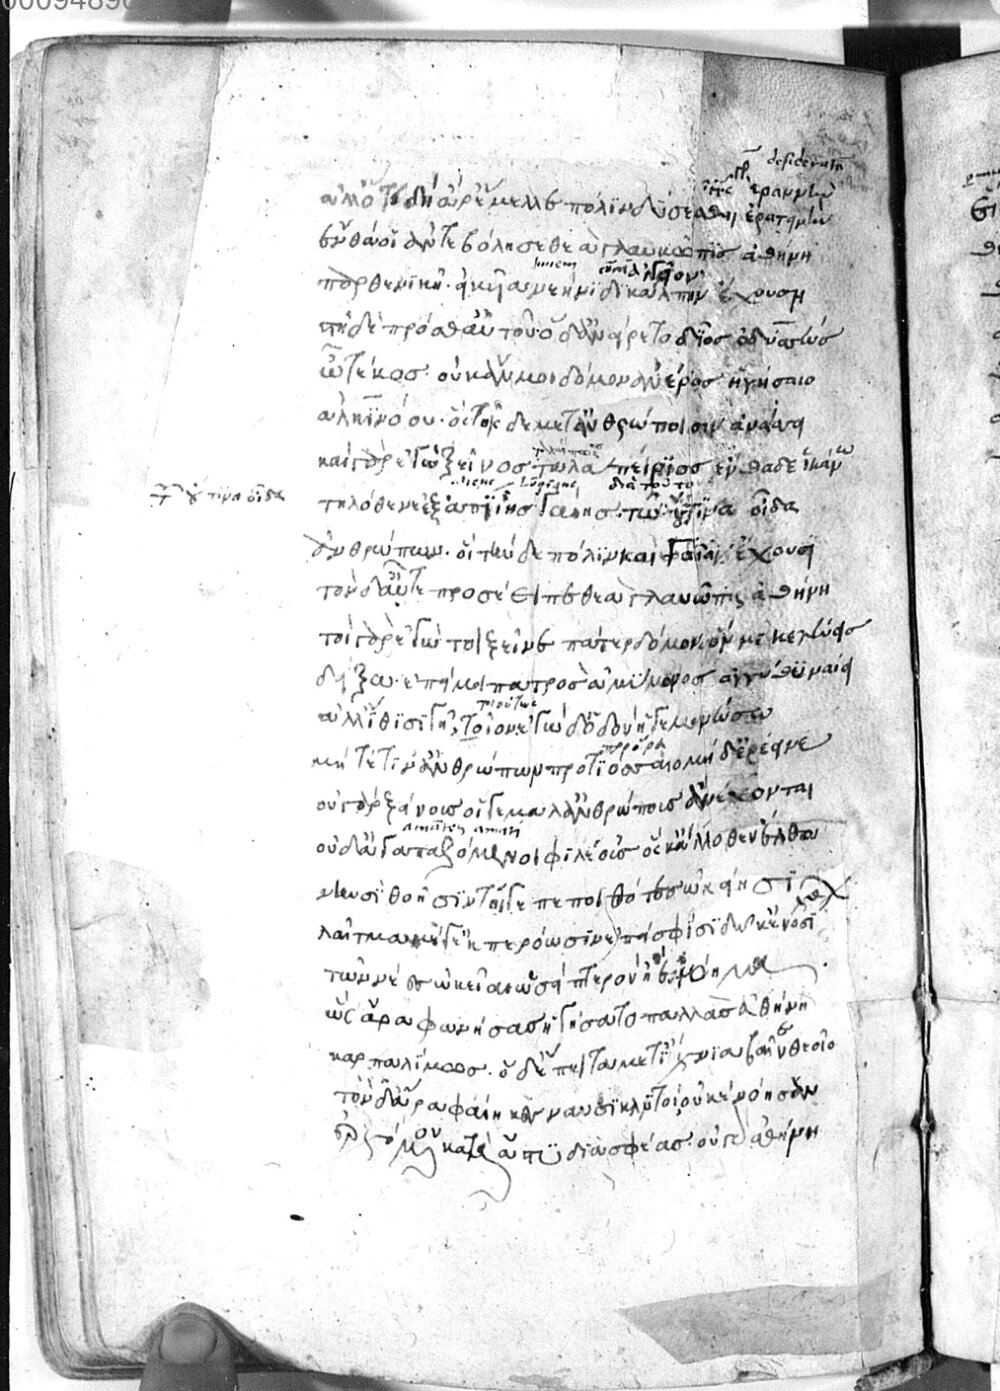 ἐραννὴν
ἀλλ' ὅτε δὴ ἄρ' ἔμελλε πόλιν δύσεσθαι ἐρατεινὴν
ἔνθα οἱ ἀντεβόλησε θεὰ γλαυκῶπις ἀθήνη
παρθενικῆ εἰκυῖα νεήνιδι κάλπιν ἐχούση
στῆ δὲ πρόσθ' αὐτοῦ· ὁ δ' ἀνείρετο δῖος ὀδυσσεύς
ὦ τέκος οὐκ ἄν μοι δόμον ἀνέρος ἡγήσαιο
ἀλκινόου· ὃς τοῖσδε μετ' ἀνθρώποισιν ἀνάσσει
καὶ γὰρ ἐγὼ ξεῖνος ταλαπείριος ἐνθάδε ἱκάνω
διὰ τοῦτο
οὔτινα οἶδα
τηλόθεν ἐξ ἀπίης γαίης· τῶ οὔτινα οἶδα
ἀνθρώπων· οἳ τήνδε πόλιν καὶ γαῖαν ἔχουσι
τὸν δ' αὖτε προσέειπε θεὰ γλαυκῶπις ἀθήνη
τοὶ γὰρ ἐγώ τοι ξεῖνε πάτερ δόμον ὅν με κελεύεις
δείξω· ἐπεί μοι πατρὸς ἀμύμονος ἐγγύθι ναίει
ἀλλ' ἴθι σιγῆ τοῖον ἐγὼ δ' ὁδὸν ἡγεμονεύσω
μήτέ τιν' ἀνθρώπων προτιόσσεο μηδ' ἐρέεινε
οὐ γὰρ ξείνους οἵ γε μάλ' ἀνθρώπους ἀνέχονται
οὐδ' ἀγαπαζόμενοι φιλέουσ' ὅς κ' ἄλλοθεν ἔλθοι
νηυσὶ θοῆσιν τοί γε πεποιθότες ὠκείησι
λαῖτμα μέγ' ἐκπερόωσιν ἐπεί σφισι δῶκ' ἐνοσίχθων
τῶν νέες ὠκεῖαι ὡσεὶ πτερὸν ἠὲ νόημα
ὣς ἄρα φωνήσασ' ἡγήσατο παλλὰς ἀθήνη
καρπαλίμως· ὁ δ' ἔπειτα μετ' ἴχνια βαῖνε θεοῖο
τὸν δ' ἄρα φαίηκες ναυσίκλυτοι οὐκ ἐνόησαν
ἐρχόμενον κατὰ ἄστυ διὰ σφέας· οὐ γὰρ ἀθήνη